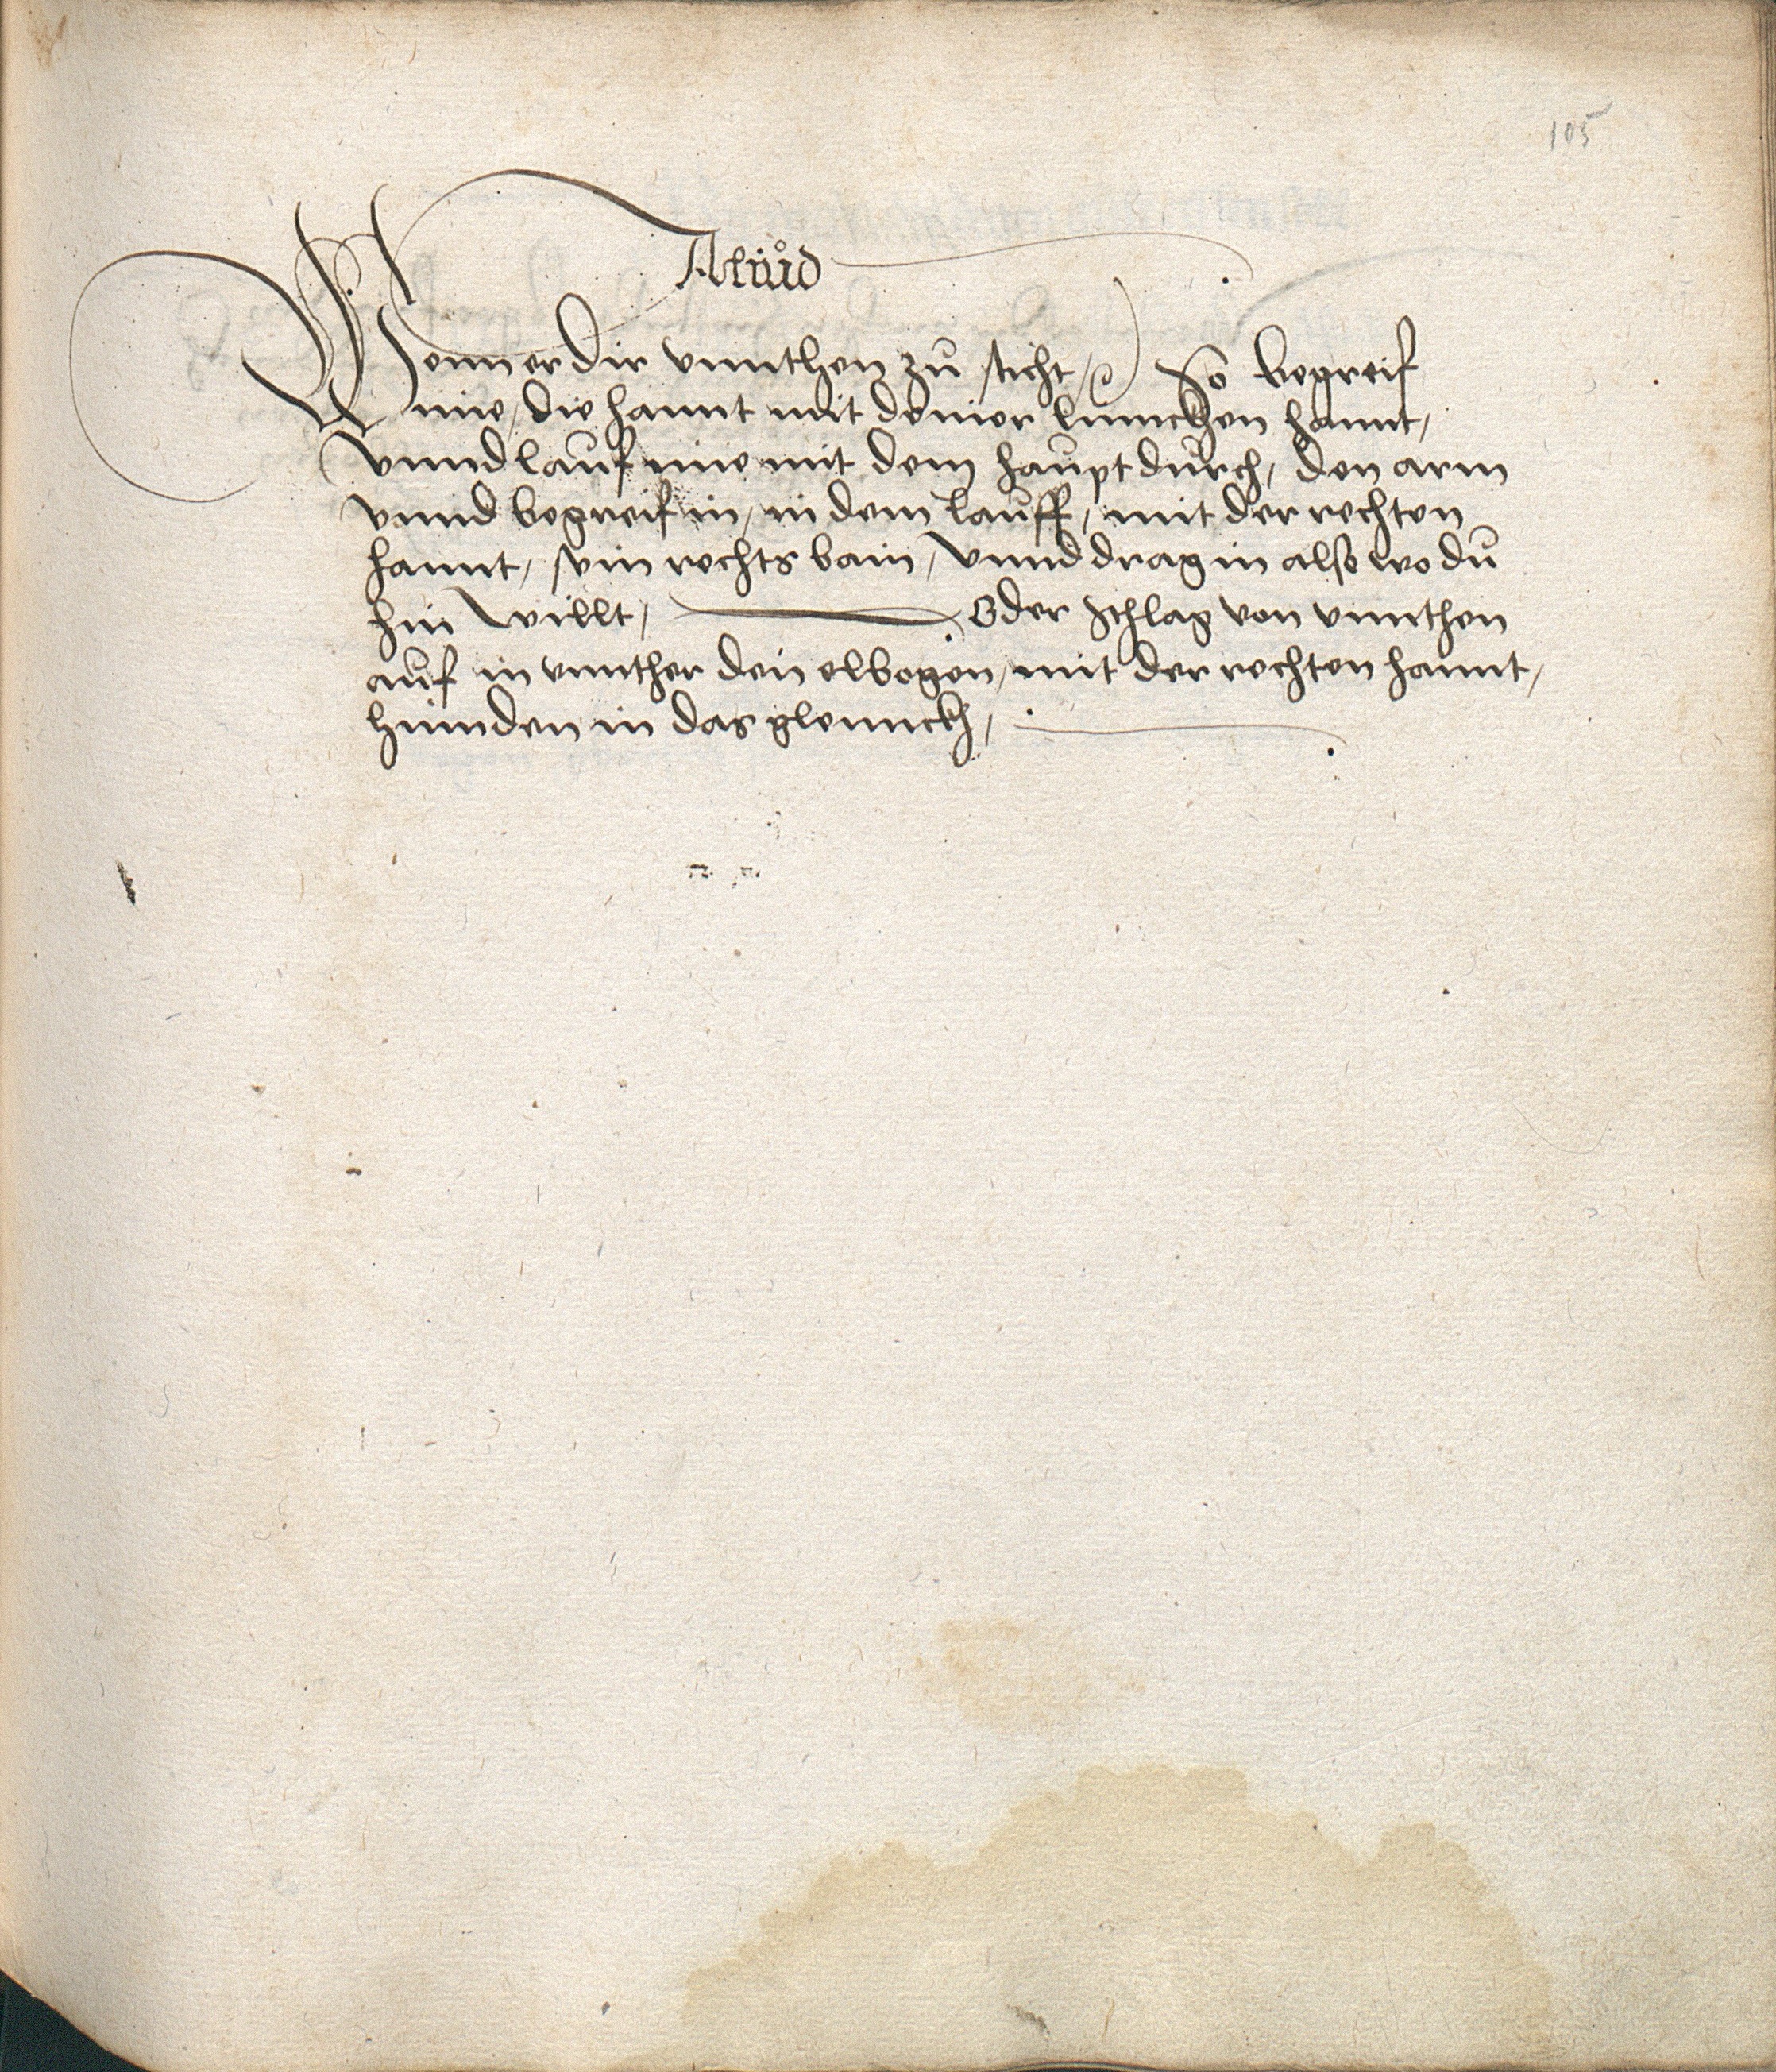 105
Aliud
Wenn er dir vnnthen zu sticht / So begreif
ime / die hannt mit deiner linncken hannt /
vnnd lauf ime mit dem haupt durch / den arm
vnnd begreif im / in dem lauff / mit der rechten
hannt / sein rechts bain / vnnd drag in also wo du
hin willt / Oder schlag von vnnthen
auf in vnnther den elbogen / mit der rechten hannt /
hinnden in das glennckh /